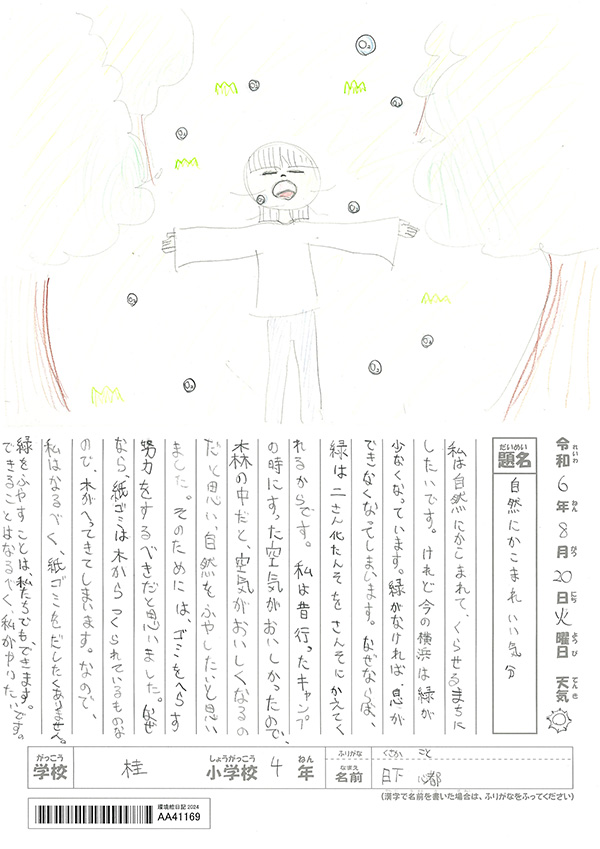 O₂
O₂
O₂
O₂
O₂
O₂
O₂
O₂
O₂
O₂
令和6年8月20日火曜日 天気
れいわ ねん がつ にち ようび てんき
だいめい
題名
自然にかこまれいい気分
私は自然にかこまれて、くらせるまちに
したいです。けれど今の横浜は緑が
少なくなっています。緑がなければ、息が
できなくなってしまいます。なぜならば、
緑は二さん化たんそをさんそにかえてく
れるからです。私は昔行ったキャンプ
の時にすった空気がおいしかったので、
森の中だと、空気がおいしくなるの
だと思い、自然をふやしたいと思い
ました。そのためには、ゴミをへらす
努力をするべきだと思いました。なぜ
なら、紙ゴミは木からつくられているものな
ので、木がへってきてしまいます。なので、
私はなるべく、紙ゴミをだしたくありません。
緑をふやすことは、私たちでもできます。
できることはなるべく、私がやりたいです。
がっこう
学校
桂
しょうがっこう
小学校
4
ねん
年
ふりがな
くさか こと
なまえ
名前
日下 心都
(漢字で名前を書いた場合は、ふりがなをふってください)
環境絵日記2024
AA41169